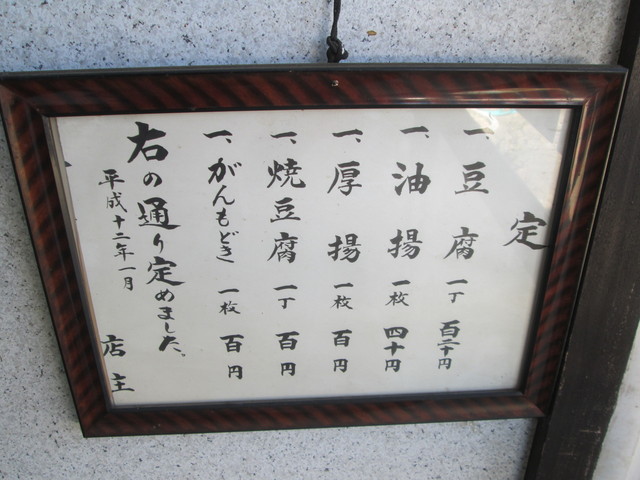 定
一、豆腐 一丁 百二十円
一、油揚 一枚 四十円
一、厚揚 一枚 百円
一、焼豆腐 一丁 百円
一、がんもどき 一枚 百円
右の通り定めました。
平成十二年一月 店主